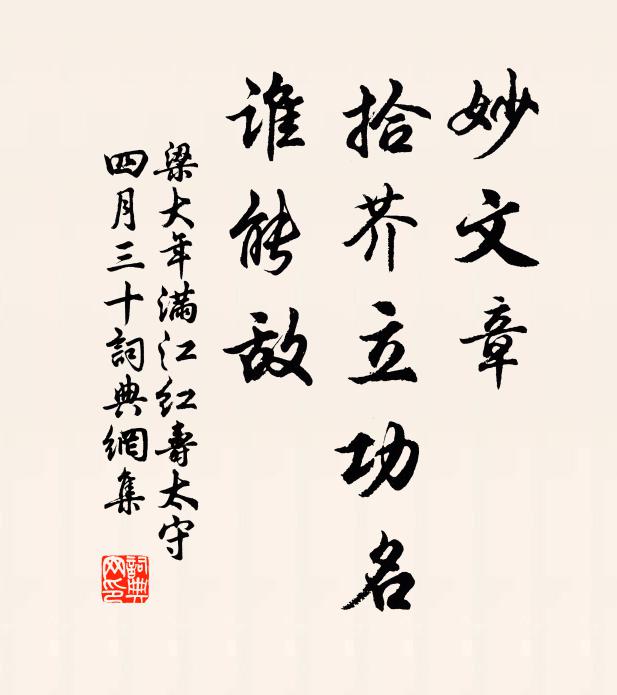 妙文章
拾芥立功名
谁能敌
梁大年满江红寿太守
四月三十詞典網集
詞典网印